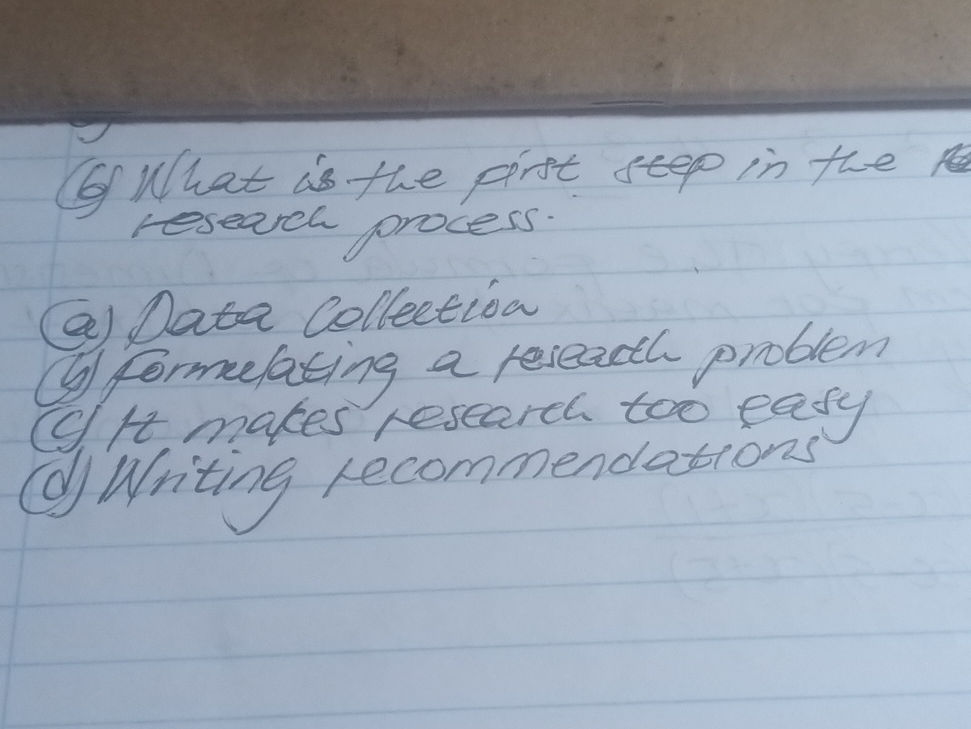 (6) What is the first step in the
research process.
(a) Data Collection
(b) formulating a research problem
(c) It makes research too easy
(d) Writing recommendations